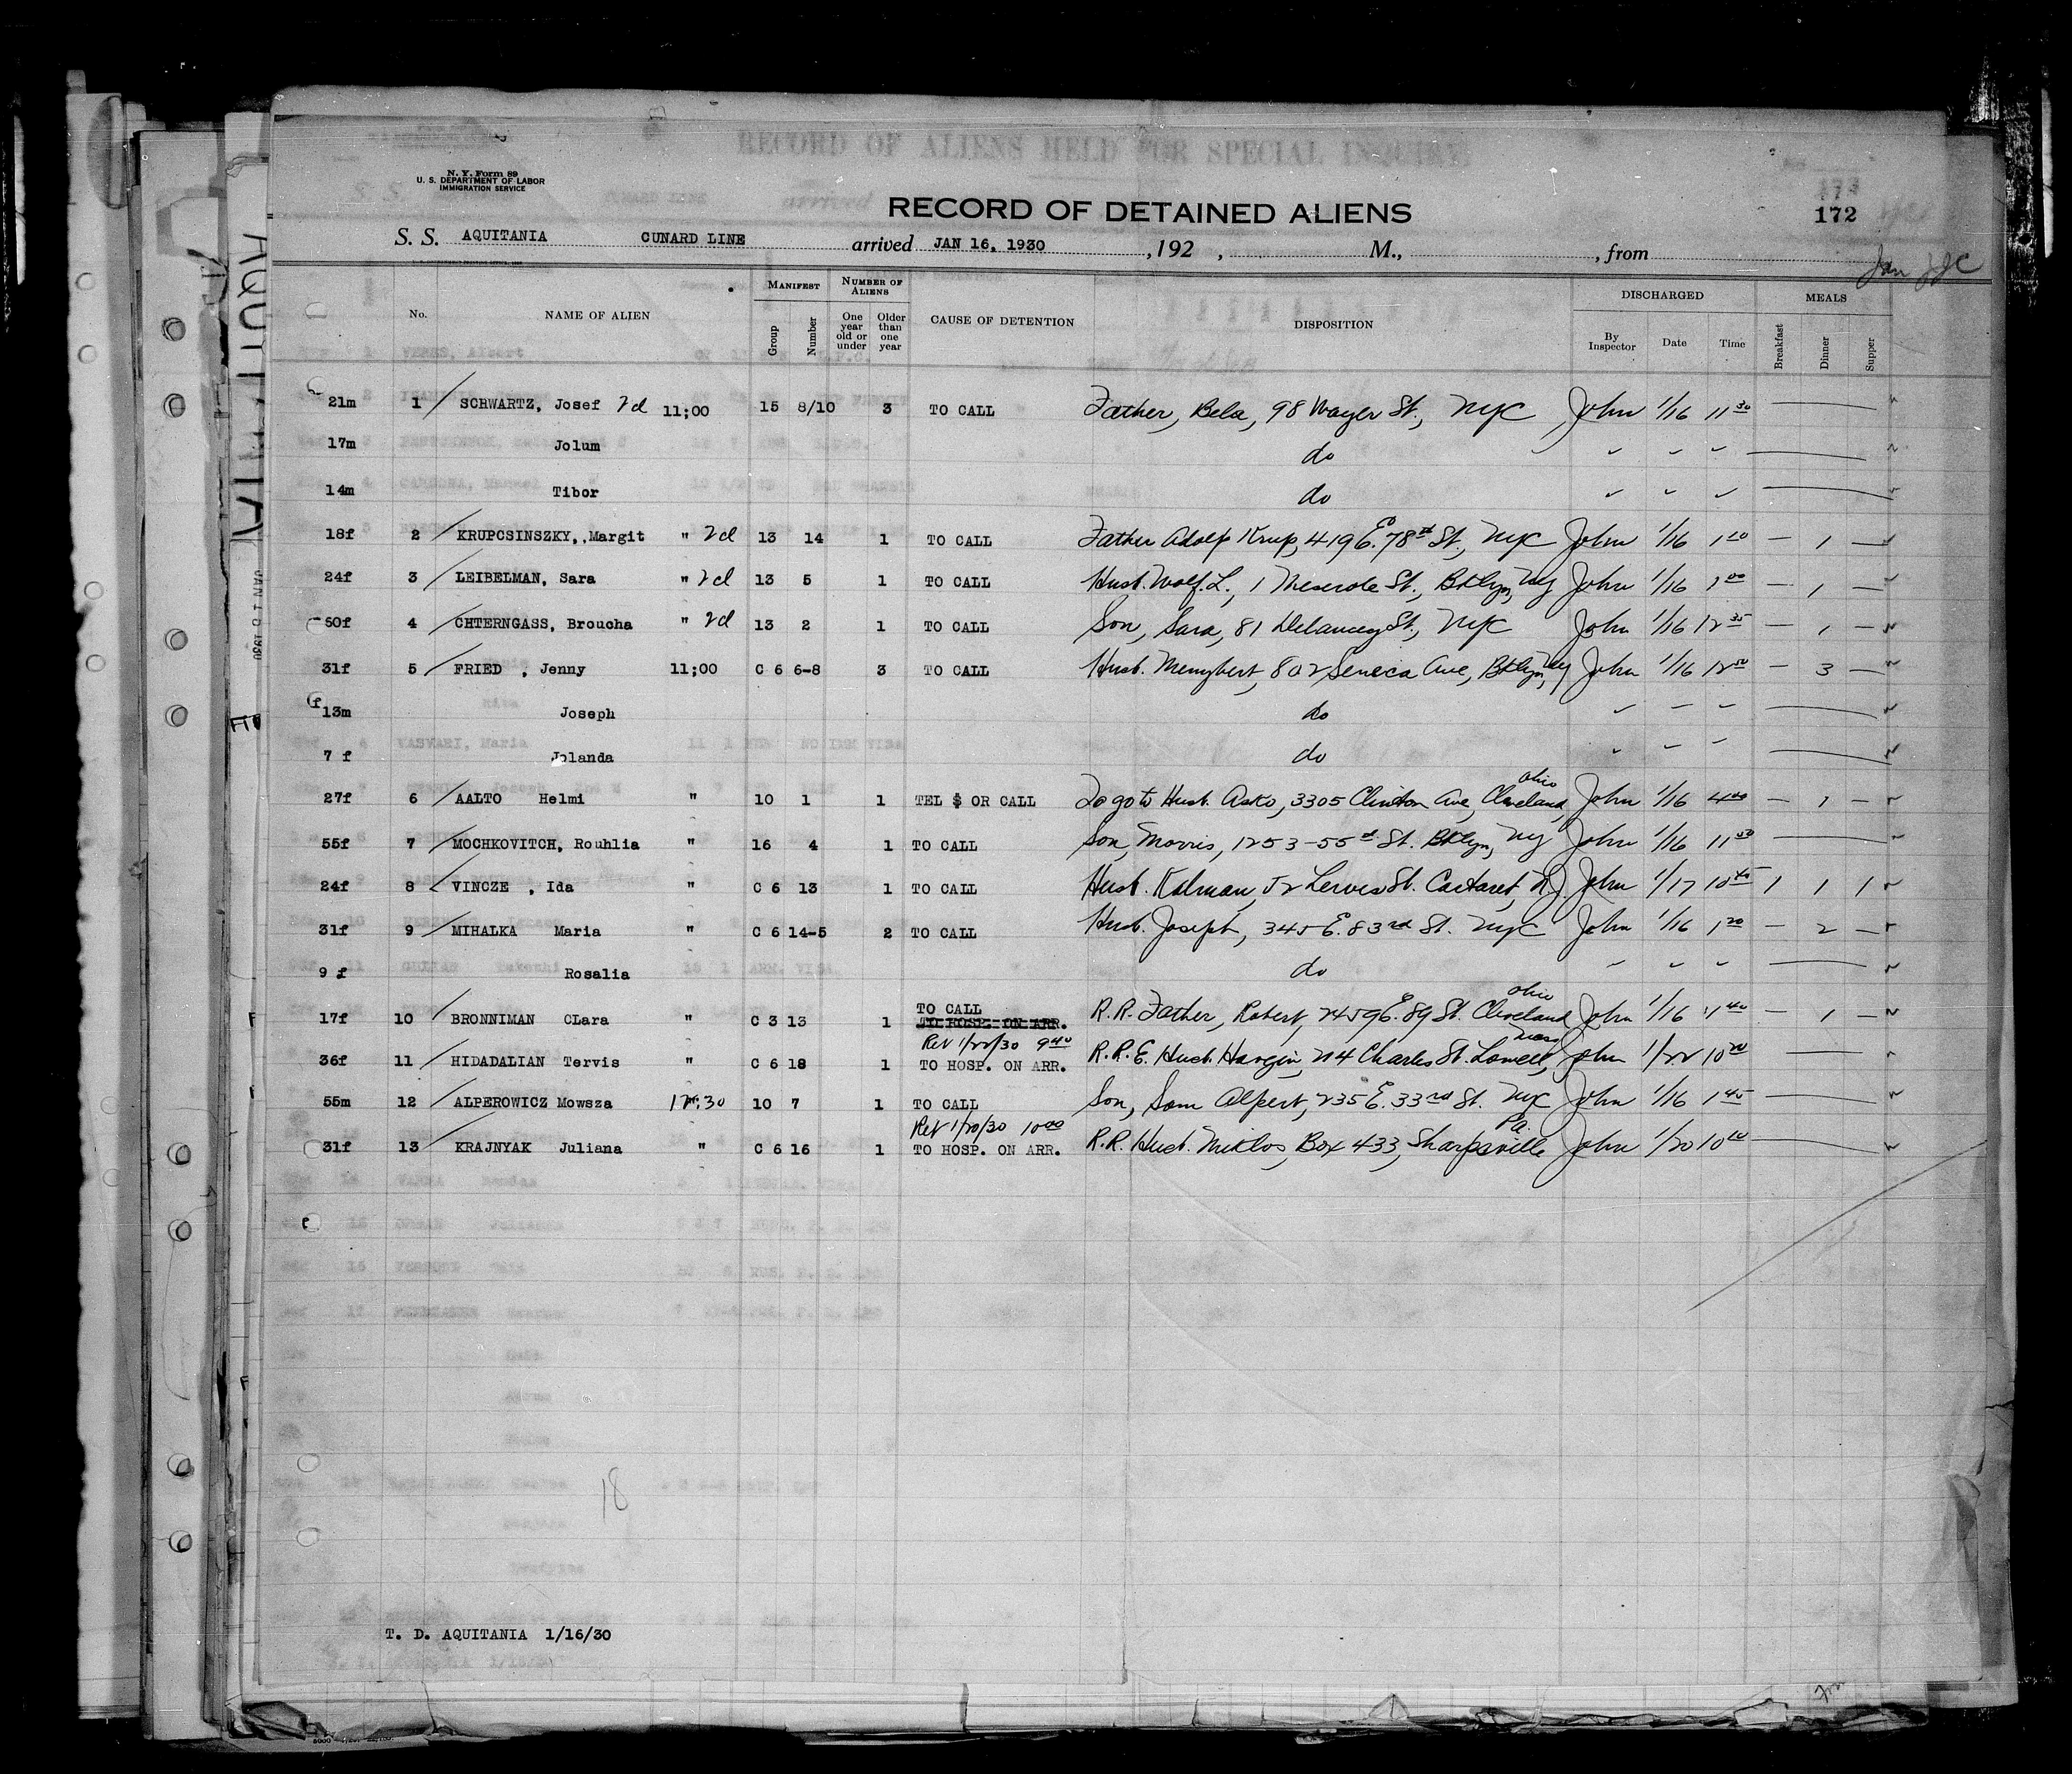 RECORD OF ALIENS HELD FOR SPECIAL INQUIRY
N. Y. Form 89
U. S. DEPARTMENT OF LABOR
IMMIGRATION SERVICE
173
172
RECORD OF DETAINED ALIENS
S. S. AQUITANIA CUNARD LINE arrived JAN 16, 1930 , 192 , M., , from
No. NAME OF ALIEN MANIFEST Group Number NUMBER OF ALIENS One year old or under Older than one year CAUSE OF DETENTION DISPOSITION DISCHARGED By Inspector Date Time MEALS Breakfast Dinner Supper
21m 1 SCHWARTZ, Josef 2d 11;00 15 8/10 3 TO CALL Father, Bela, 98 St., NYC John 1/16 11 30
17m Jolum do
14m Tibor do
18f 2 KRUPCSINSZKY,.Margit " 2d 13 14 1 TO CALL Father Adolp Krup, 419 E. 78th St., NYC John 1/16 1 20 — 1 —
24f 3 LEIBELMAN, Sara " 2d 13 5 1 TO CALL Husb. Wolf. L., 1 Meserole St., Bklyn, NY John 1/16 1 00 — 1 —
60f 4 CHTERNGASS, Broucha " 2d 13 2 1 TO CALL Son, Sara, 81 Delancey St., NYC John 1/16 12 35 — 1 —
31f 5 FRIED , Jenny 11;00 C 6 6-8 3 TO CALL Husb. 802 Seneca Ave, Bklyn, NY John 1/16 12 50 — 3 —
13m Joseph do
7 f Jolanda do
27f 6 AALTO Helmi " 10 1 1 TEL $ OR CALL To go to Husb. Asko, 3305 Clinton Ave, Cleveland, Ohio John 1/16 4 00 — 1 —
55f 7 MOCHKOVITCH, Rouhlia " 16 4 1 TO CALL Son, Morris, 1253-55th St. Bklyn, NY John 1/16 11 50
24f 8 VINCZE , Ida " C 6 13 1 TO CALL Husb. Kalman, 52 St. Carteret, NJ. John 1/17 10 45 1 1 1
31f 9 MIHALKA Maria " C 6 14-5 2 TO CALL Husb. Joseph, 345 E. 83rd St. NYC John 1/16 1 20 — 2 —
9 f Rosalia do
17f 10 BRONNIMAN CLara " C 3 13 1 TO CALL TO HOSP. ON ARR. R.R. Father, Robert, 2459 E. 89 St. Cleveland Ohio John 1/16 40 — 1 —
Ret 1/22/30 9 40
36f 11 HIDADALIAN Tervis " C 6 18 1 TO HOSP. ON ARR. R.R.E. Husb. 24 Charles St. Lowell, Mass John 1/22 10 20
55m 12 ALPEROWICZ Mowsza 12;30 10 7 1 TO CALL Son, Sam Alpert, 235 E. 33rd St. NYC John 1/16 1 45
Ret 1/20/30 10 00
31f 13 KRAJNYAK Juliana " C 6 16 1 TO HOSP. ON ARR. R.R. Husb. Miklos, Box 433, Sharpsville Pa. John 1/20 10 20
18
T. D. AQUITANIA 1/16/30
AQUITANIA